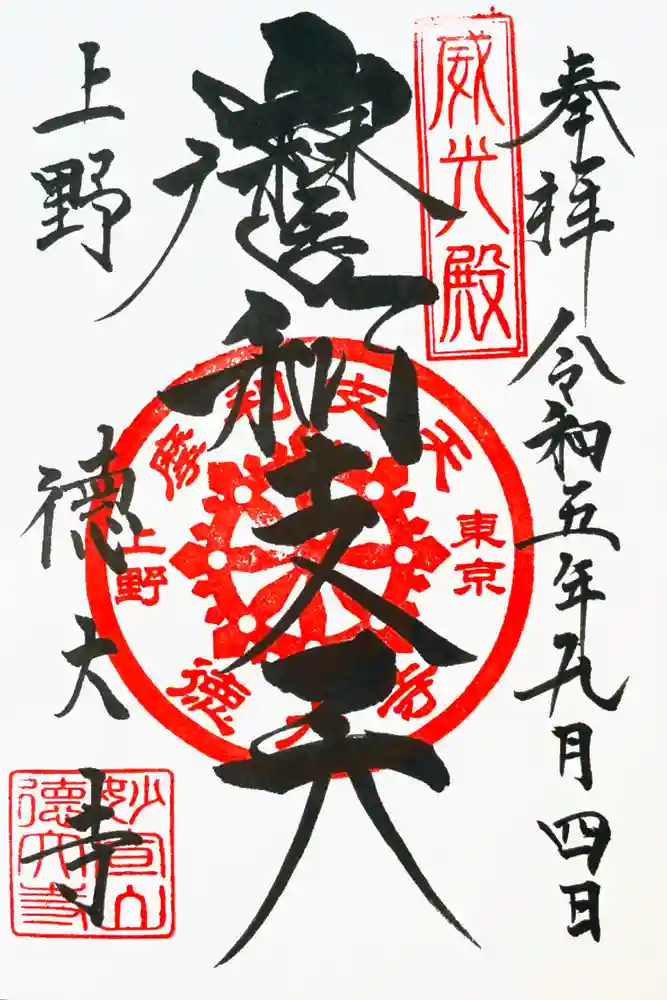 奉拝 令和五年九月四日
威光殿
摩利支天
摩利支天
東京
上野
徳大寺
上野 徳大寺
妙宣山
徳大寺